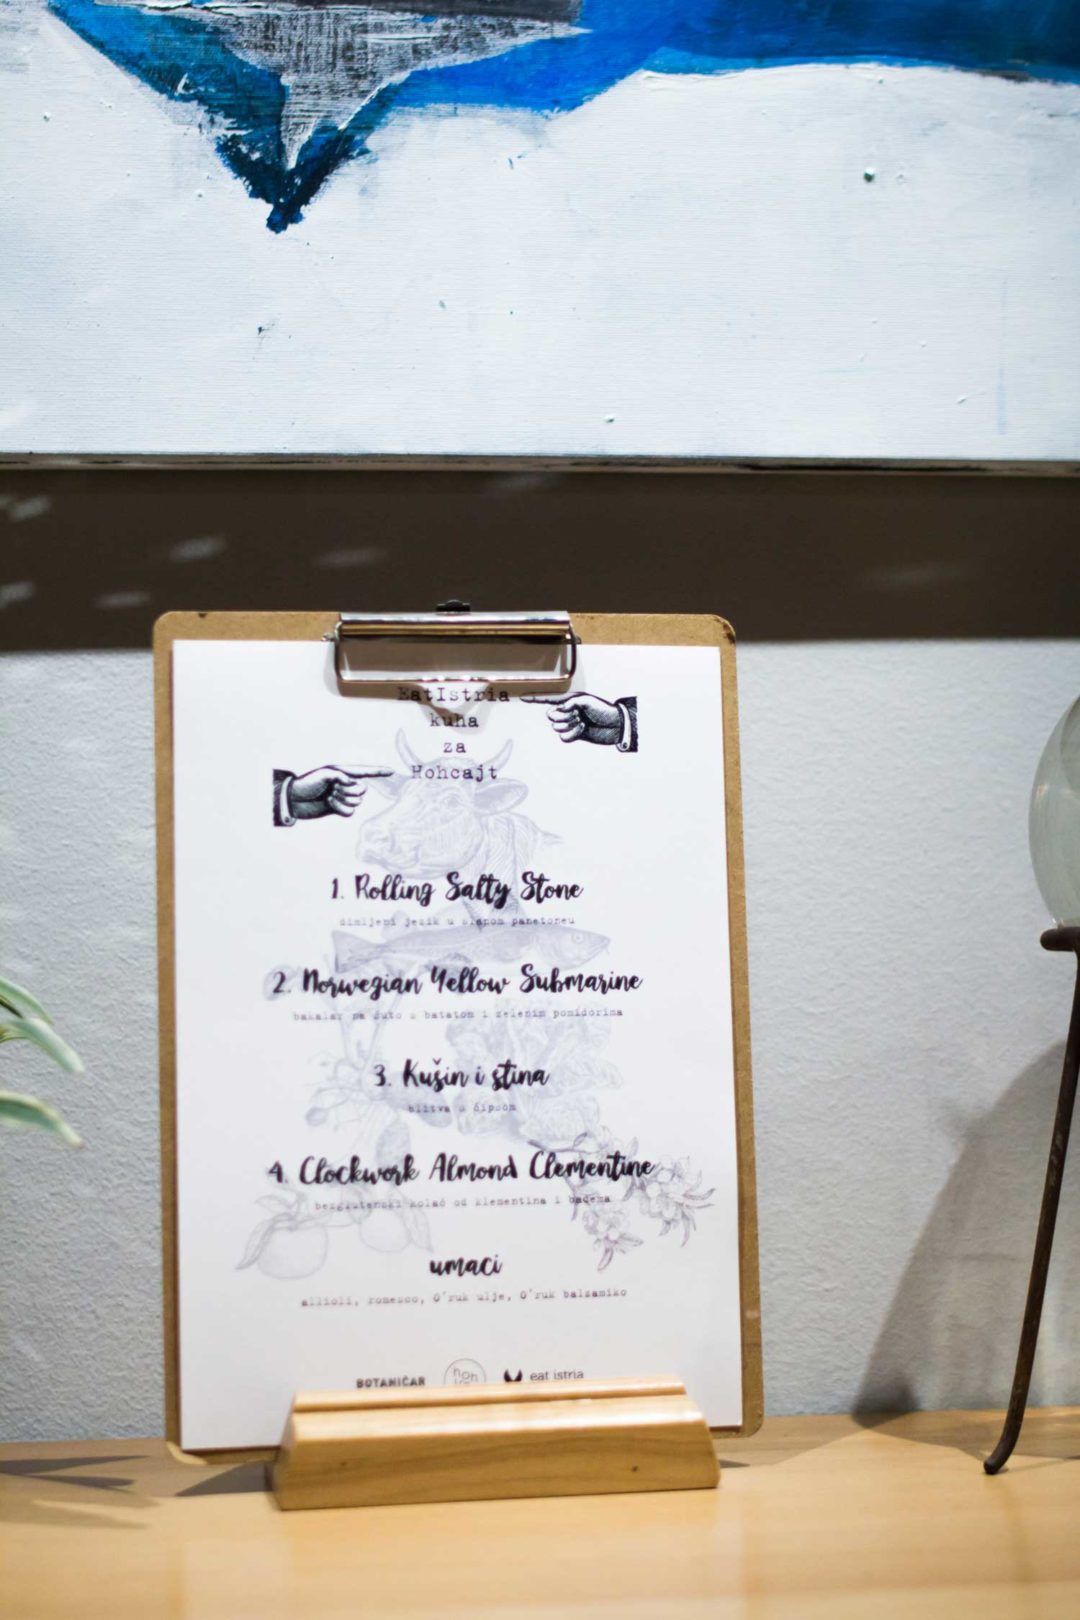 EatIstria
kuha
za
Hohcajt
1. Rolling Salty Stone
dimljeni jezik u slanom panetoneu
2. Norwegian Yellow Submarine
bakalar na žuto s batatom i zelenim pomidorima
3. Kušin i ština
blitva s čipsom
4. Clockwork Almond Clementine
bezglutenski kolač od klementina i badema
umaci
allioli, romesco, O'ruk ulje, O'ruk balzamiko
BOTANIČAR
eat istria